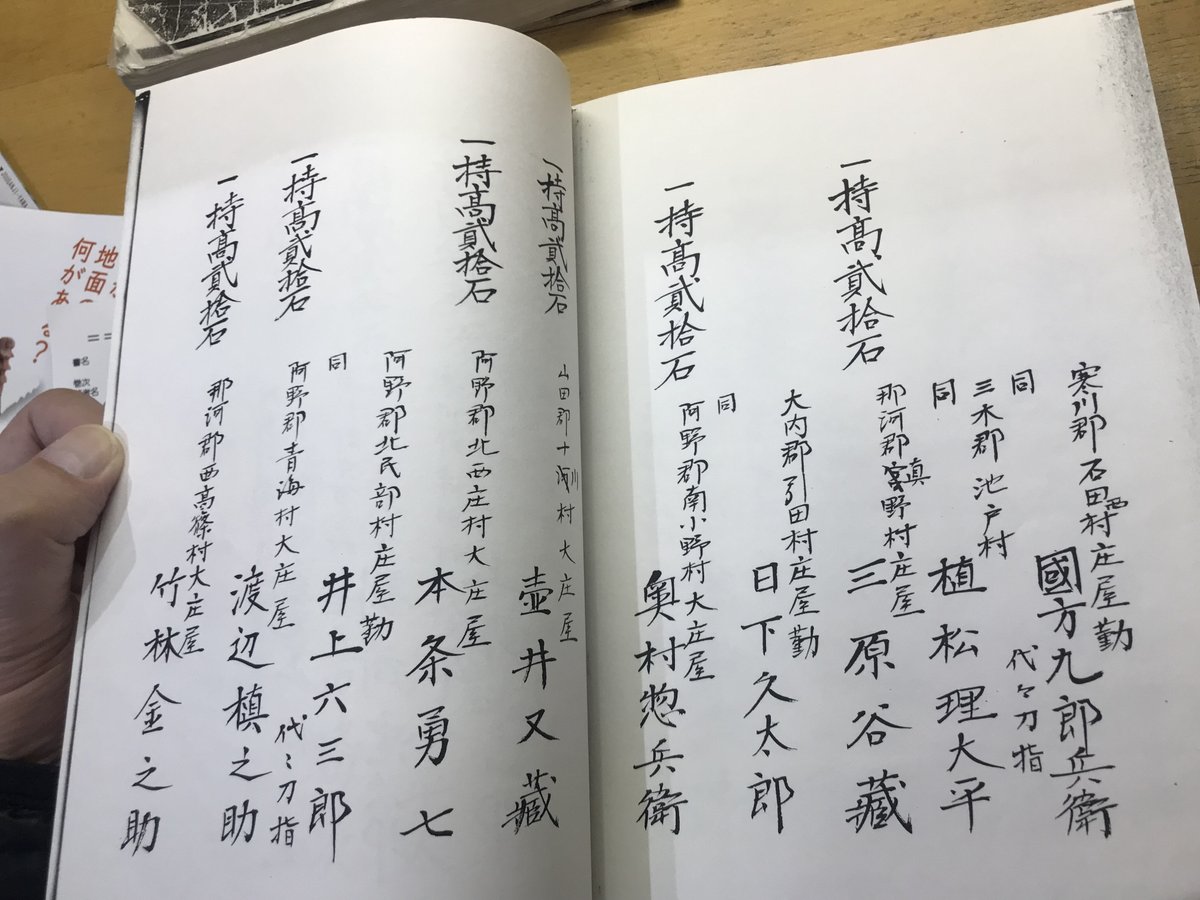 寒川郡石田西村庄屋勤
國方九郎兵衛
同 代々刀指
三木郡池戸村
植松理大平
同
一持高貳拾石
那河郡真野村庄屋
三原谷藏
大内郡引田村庄屋勤
日下久太郎
同
一持高貳拾石
阿野郡南小野村大庄屋
奥村惣兵衛
一持高貳拾石
山田郡十川村大庄屋
壷井又藏
一持高貳拾石
阿野郡北西庄村大庄屋
本条勇七
阿野郡北民部村庄屋勤
井上六三郎
同 代〻刀指
一持高貳拾石
阿野郡青海村大庄屋
渡辺槙之助
一持高貳拾石
那河郡西高篠村大庄屋
竹林金之助
地面
何が
書名
巻次